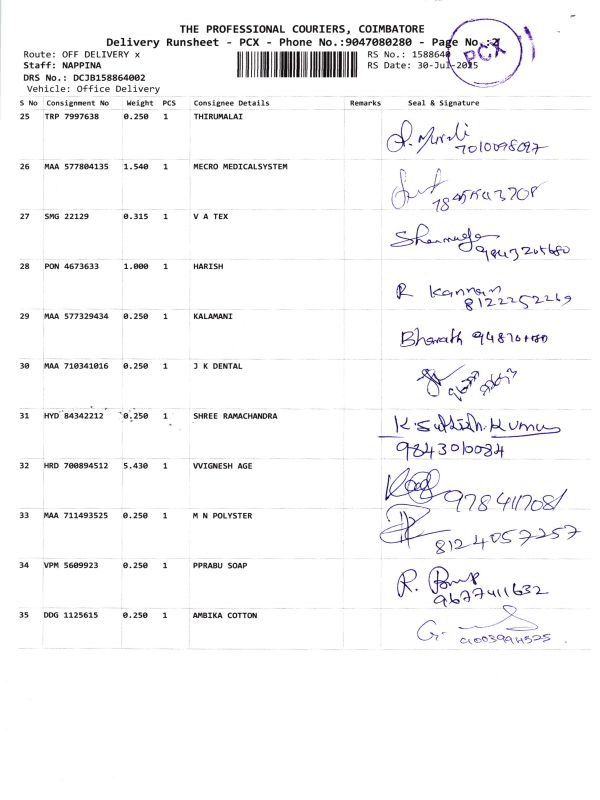 THE PROFESSIONAL COURIERS, COIMBATORE
Delivery Runsheet - PCX - Phone No.:9047080280 - Page No.:2
Route: OFF DELIVERY x RS No.: 1588640
Staff: NAPPINA RS Date: 30-Jul-2025
DRS No.: DCJB158864002
Vehicle: Office Delivery
PCX
S No Consignment No Weight PCS Consignee Details Remarks Seal & Signature
25 TRP 7997638 0.250 1 THIRUMALAI
7010098097
26 MAA 577804135 1.540 1 MECRO MEDICALSYSTEM
27 SMG 22129 0.315 1 V A TEX
28 PON 4673633 1.000 1 HARISH
R Kannan
8122252269
29 MAA 577329434 0.250 1 KALAMANI
Bharath
30 MAA 710341016 0.250 1 J K DENTAL
31 HYD 84342212 0.250 1 SHREE RAMACHANDRA
K. Sathish. Kumar
9843010084
32 HRD 700894512 5.430 1 VVIGNESH AGE
9784117081
33 MAA 711493525 0.250 1 M N POLYSTER
8124057257
34 VPM 5609923 0.250 1 PPRABU SOAP
9677411632
35 DDG 1125615 0.250 1 AMBIKA COTTON
G.